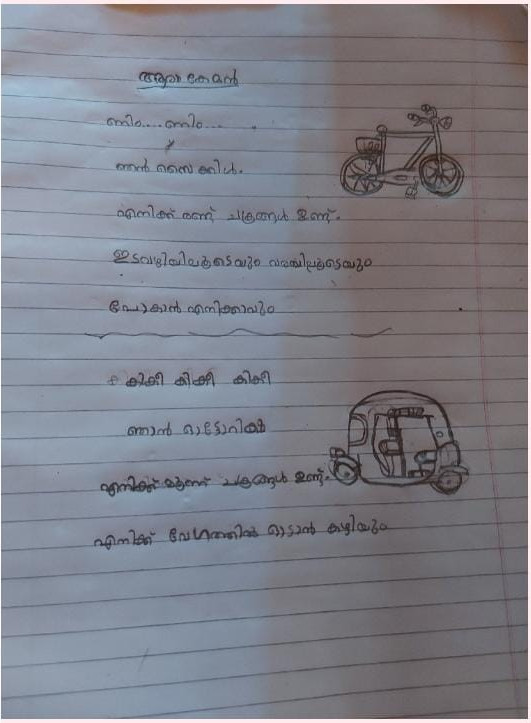 ആരാ കേമൻ
ണിം.... ണിം....
ഞൻ സൈക്കിൾ.
എനിക്ക് രണ്ട് ചക്രങ്ങൾ ഉണ്ട്.
ഇടവഴിയിലൂടെയും വരയിലൂടെയും
പോകാൻ എനിക്കാവും
കിക്കീ കിക്കീ കിക്കീ
ഞാൻ ഓട്ടോറിക്ഷ
എനിക്ക് മൂന്ന് ചക്രങ്ങൾ ഉണ്ട്.
എനിക്ക് വേഗത്തിൽ ഓടാൻ കഴിയും